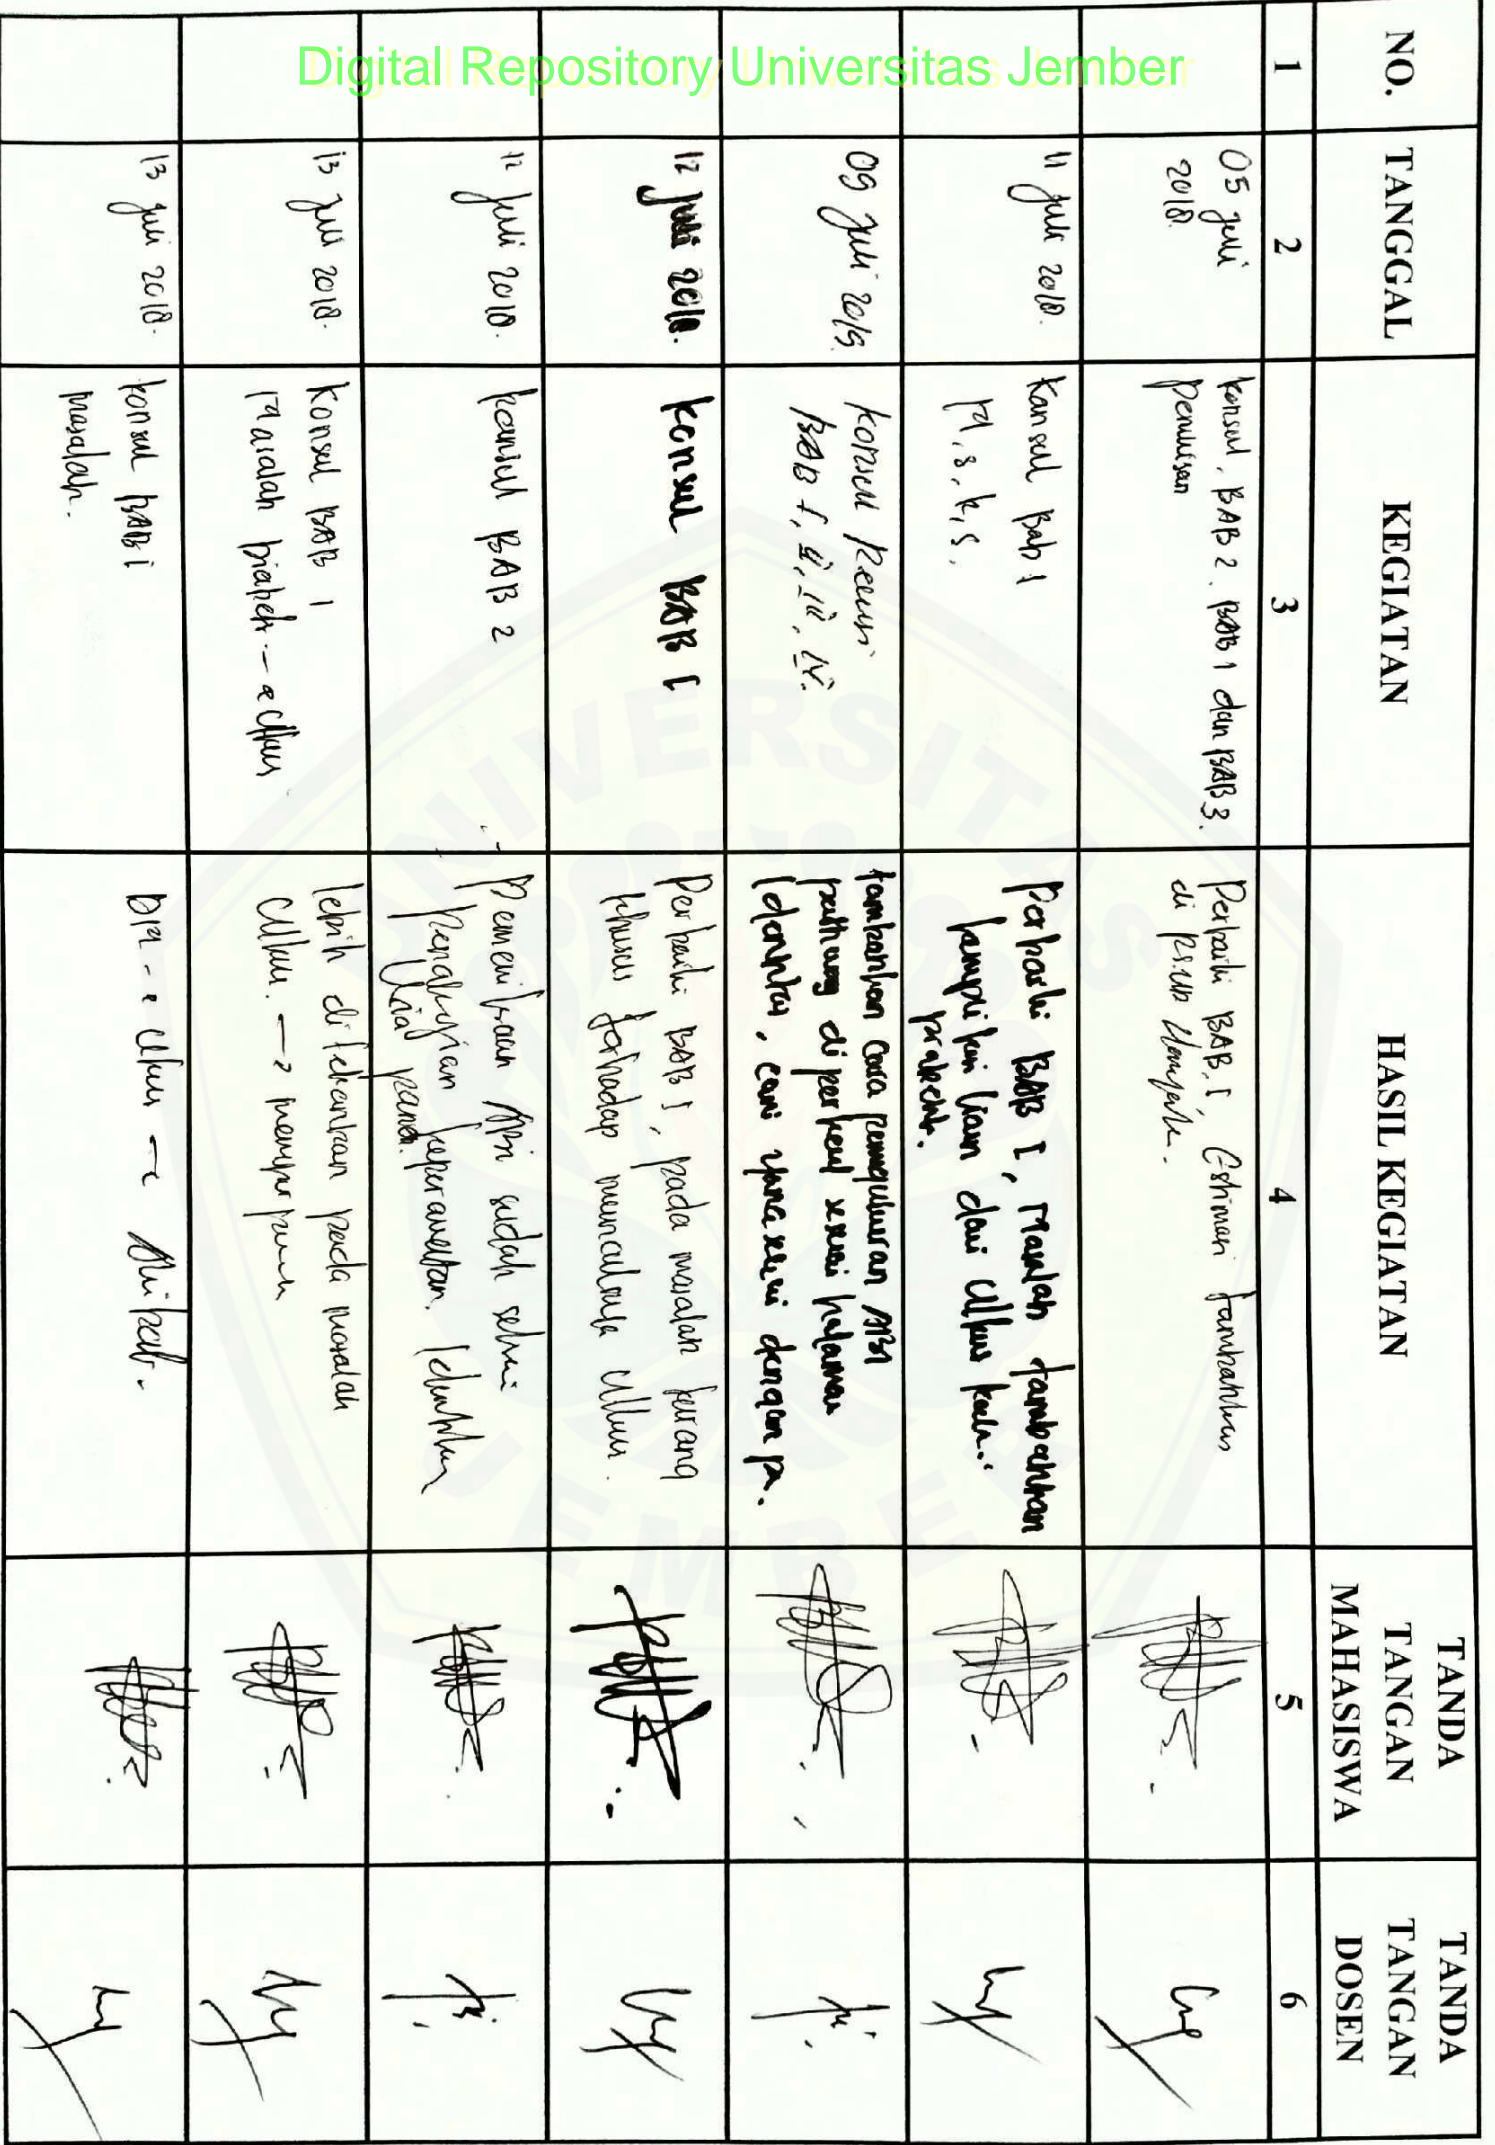 Digital Repository Universitas Jember
NO. TANGGAL KEGIATAN HASIL KEGIATAN TANDA TANGAN MAHASISWA TANDA TANGAN DOSEN
1 2 3 4 5 6
05 Juli 2018.
konsul, BAB 2. BAB 1 dan BAB 3.
penulisan
Perbaiki BAB. I, Estimasi tambahkan
di
11 Juli 2018.
Konsul Bab 1
M, S, K, S.
Perbaiki BAB I, Masalah tambahkan
lampirkan dari Ulkus
09 Juli 2018
Konsul Revisi
BAB I, II, III, IV.
tambahkan cara pengukuran ABI
di perkecil sesuai halaman
Identitas, cari yang sesuai dengan px.
12 Juli 2018.
Konsul BAB I
Perbaiki BAB I, pada masalah kurang
khusus terhadap munculnya Ulkus.
12 Juli 2018.
Konsul BAB 2
Pemeriksaan ABI sudah sesuai
Pengkajian keperawatan.
13 Juli 2018.
Konsul BAB 1
Masalah
lebih di tekankan pada masalah
Ulkus. →
13 Juli 2018.
konsul BAB I
masalah.
DM → Ulkus →